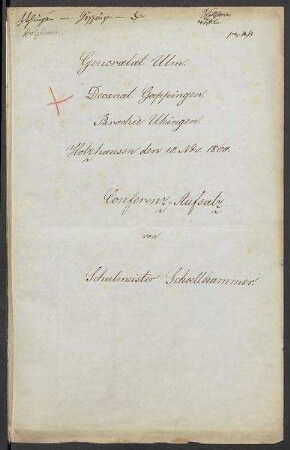 Uhingen — Göppingen —
Holzhausen
Generalat Ulm.
Decanat Goeppingen.
Parochie Uhingen.
Holzhausen den 10. Nov. 1800.
Conferenz-Aufsatz
von
Schulmeister Schoellhammer.